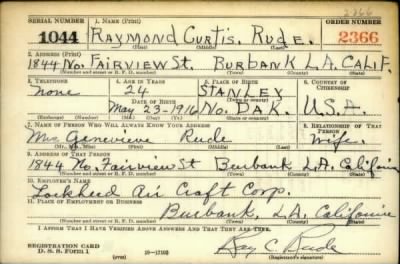 2366
SERIAL NUMBER 1. NAME (Print) ORDER NUMBER
1044 RAYMOND CURTIS. RUDE. 2366
(First) (Middle) (Last)
2. ADDRESS (Print)
1844 No. FAIRVIEW St. BURBANK L.A. CALIF.
(Number and street or R. F. D. number) (Town) (County) (State)
3. TELEPHONE 4. AGE IN YEARS 5. PLACE OF BIRTH 6. COUNTRY OF CITIZENSHIP
None 24 STANLEY
DATE OF BIRTH (Town or county)
May 23-1916 No. DAK. U.S.A.
(Exchange) (Number) (Mo.) (Day) (Yr.) (State or country)
7. NAME OF PERSON WHO WILL ALWAYS KNOW YOUR ADDRESS 8. RELATIONSHIP OF THAT PERSON
Mrs Genevieve Rude Wife.
(Mr., Mrs., Miss) (First) (Middle) (Last)
9. ADDRESS OF THAT PERSON
1844 No. Fairview St Burbank L.A. California
(Number and street or R. F. D. number) (Town) (County) (State)
10. EMPLOYER'S NAME
Lockheed Air Craft Corp.
11. PLACE OF EMPLOYMENT OR BUSINESS
Burbank, L.A. California
(Number and street or R. F. D. number) (Town) (County) (State)
I AFFIRM THAT I HAVE VERIFIED ABOVE ANSWERS AND THAT THEY ARE TRUE.
REGISTRATION CARD
D. S. S. FORM 1 Ray C. Rude